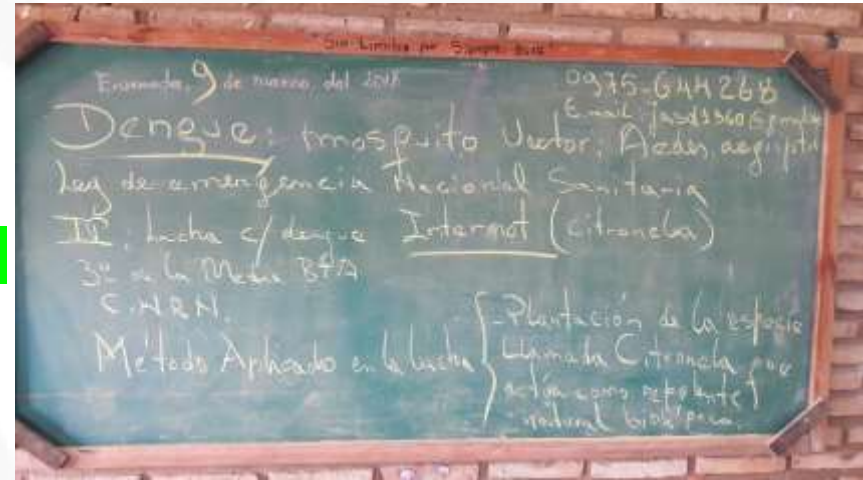 "Sin Limites por Siempre 2018"
Ensenada, 9 de marzo del 2018
0975-644268
E-mail:
Dengue: mosquito Vector: Aedes, aegipti
Ley de emergencia Nacional Sanitaria
IP: Lucha c/ dengue Internet (citronela)
3º de la Media
C.N.R.N.
Método Aplicado en la lucha
- Plantación de la especie
Llamada Citronela que
actúa como repelente
natural